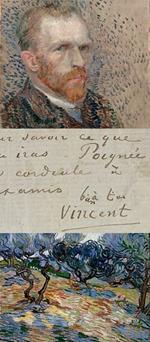 ur savoir ce que
iras Poignée
cordiale à
amis
b à toi
Vincent